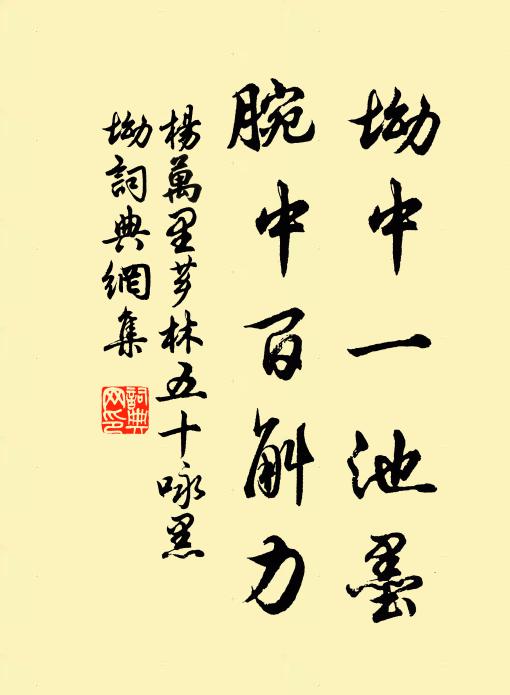 坳中一池墨
腕中百斛力
楊萬里芗林五十咏墨
坳詞典網集
詞典
网印